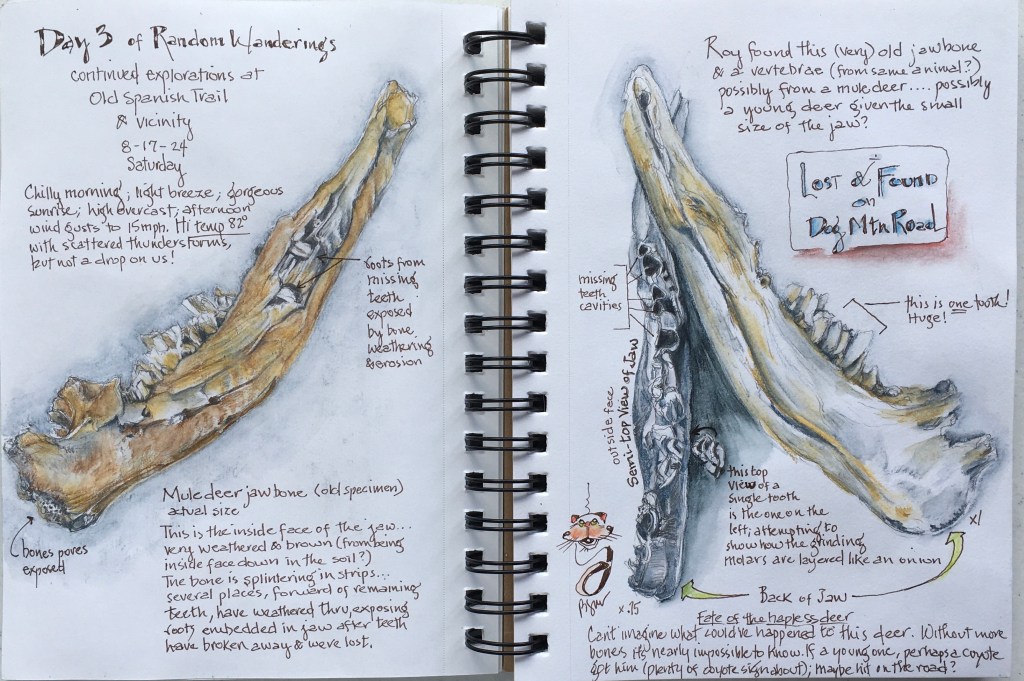 Day 3 of Random Wanderings
continued explorations at
Old Spanish Trail
& vicinity
8-17-24
Saturday
Chilly morning; light breeze; gorgeous
sunrise; high overcast; afternoon
wind gusts to 15mph. Hi temp 82°
with scattered thunderstorms,
but not a drop on us!
roots from
missing
teeth
exposed
by bone
weathering
& erosion
bones pores
exposed
Mule deer jaw bone (old specimen)
actual size
This is the inside face of the jaw...
very weathered & brown (from being
inside face down in the soil?)
The bone is splintering in strips...
several places, forward of remaining
teeth, have weathered thru, exposing
roots embedded in jaw after teeth
have broken away & were lost.
Roy found this (very) old jawbone
& a vertebrae (from same animal?)
possibly from a mule deer.... possibly
a young deer given the small
size of the jaw?
Lost & Found
on
Dog Mtn Road
missing
teeth
cavities
this is one tooth!
Huge!
outside face
Semi-top View of Jaw
this top
view of a
single tooth
is the one on the
left; attempting to
show how the grinding
molars are layered like an onion
x1
x.75
Back of Jaw
Fate of the hapless deer
Can't imagine what could've happened to this deer. Without more
bones it's nearly impossible to know. If a young one, perhaps a coyote
got him (plenty of coyote sign about); maybe hit on the road?